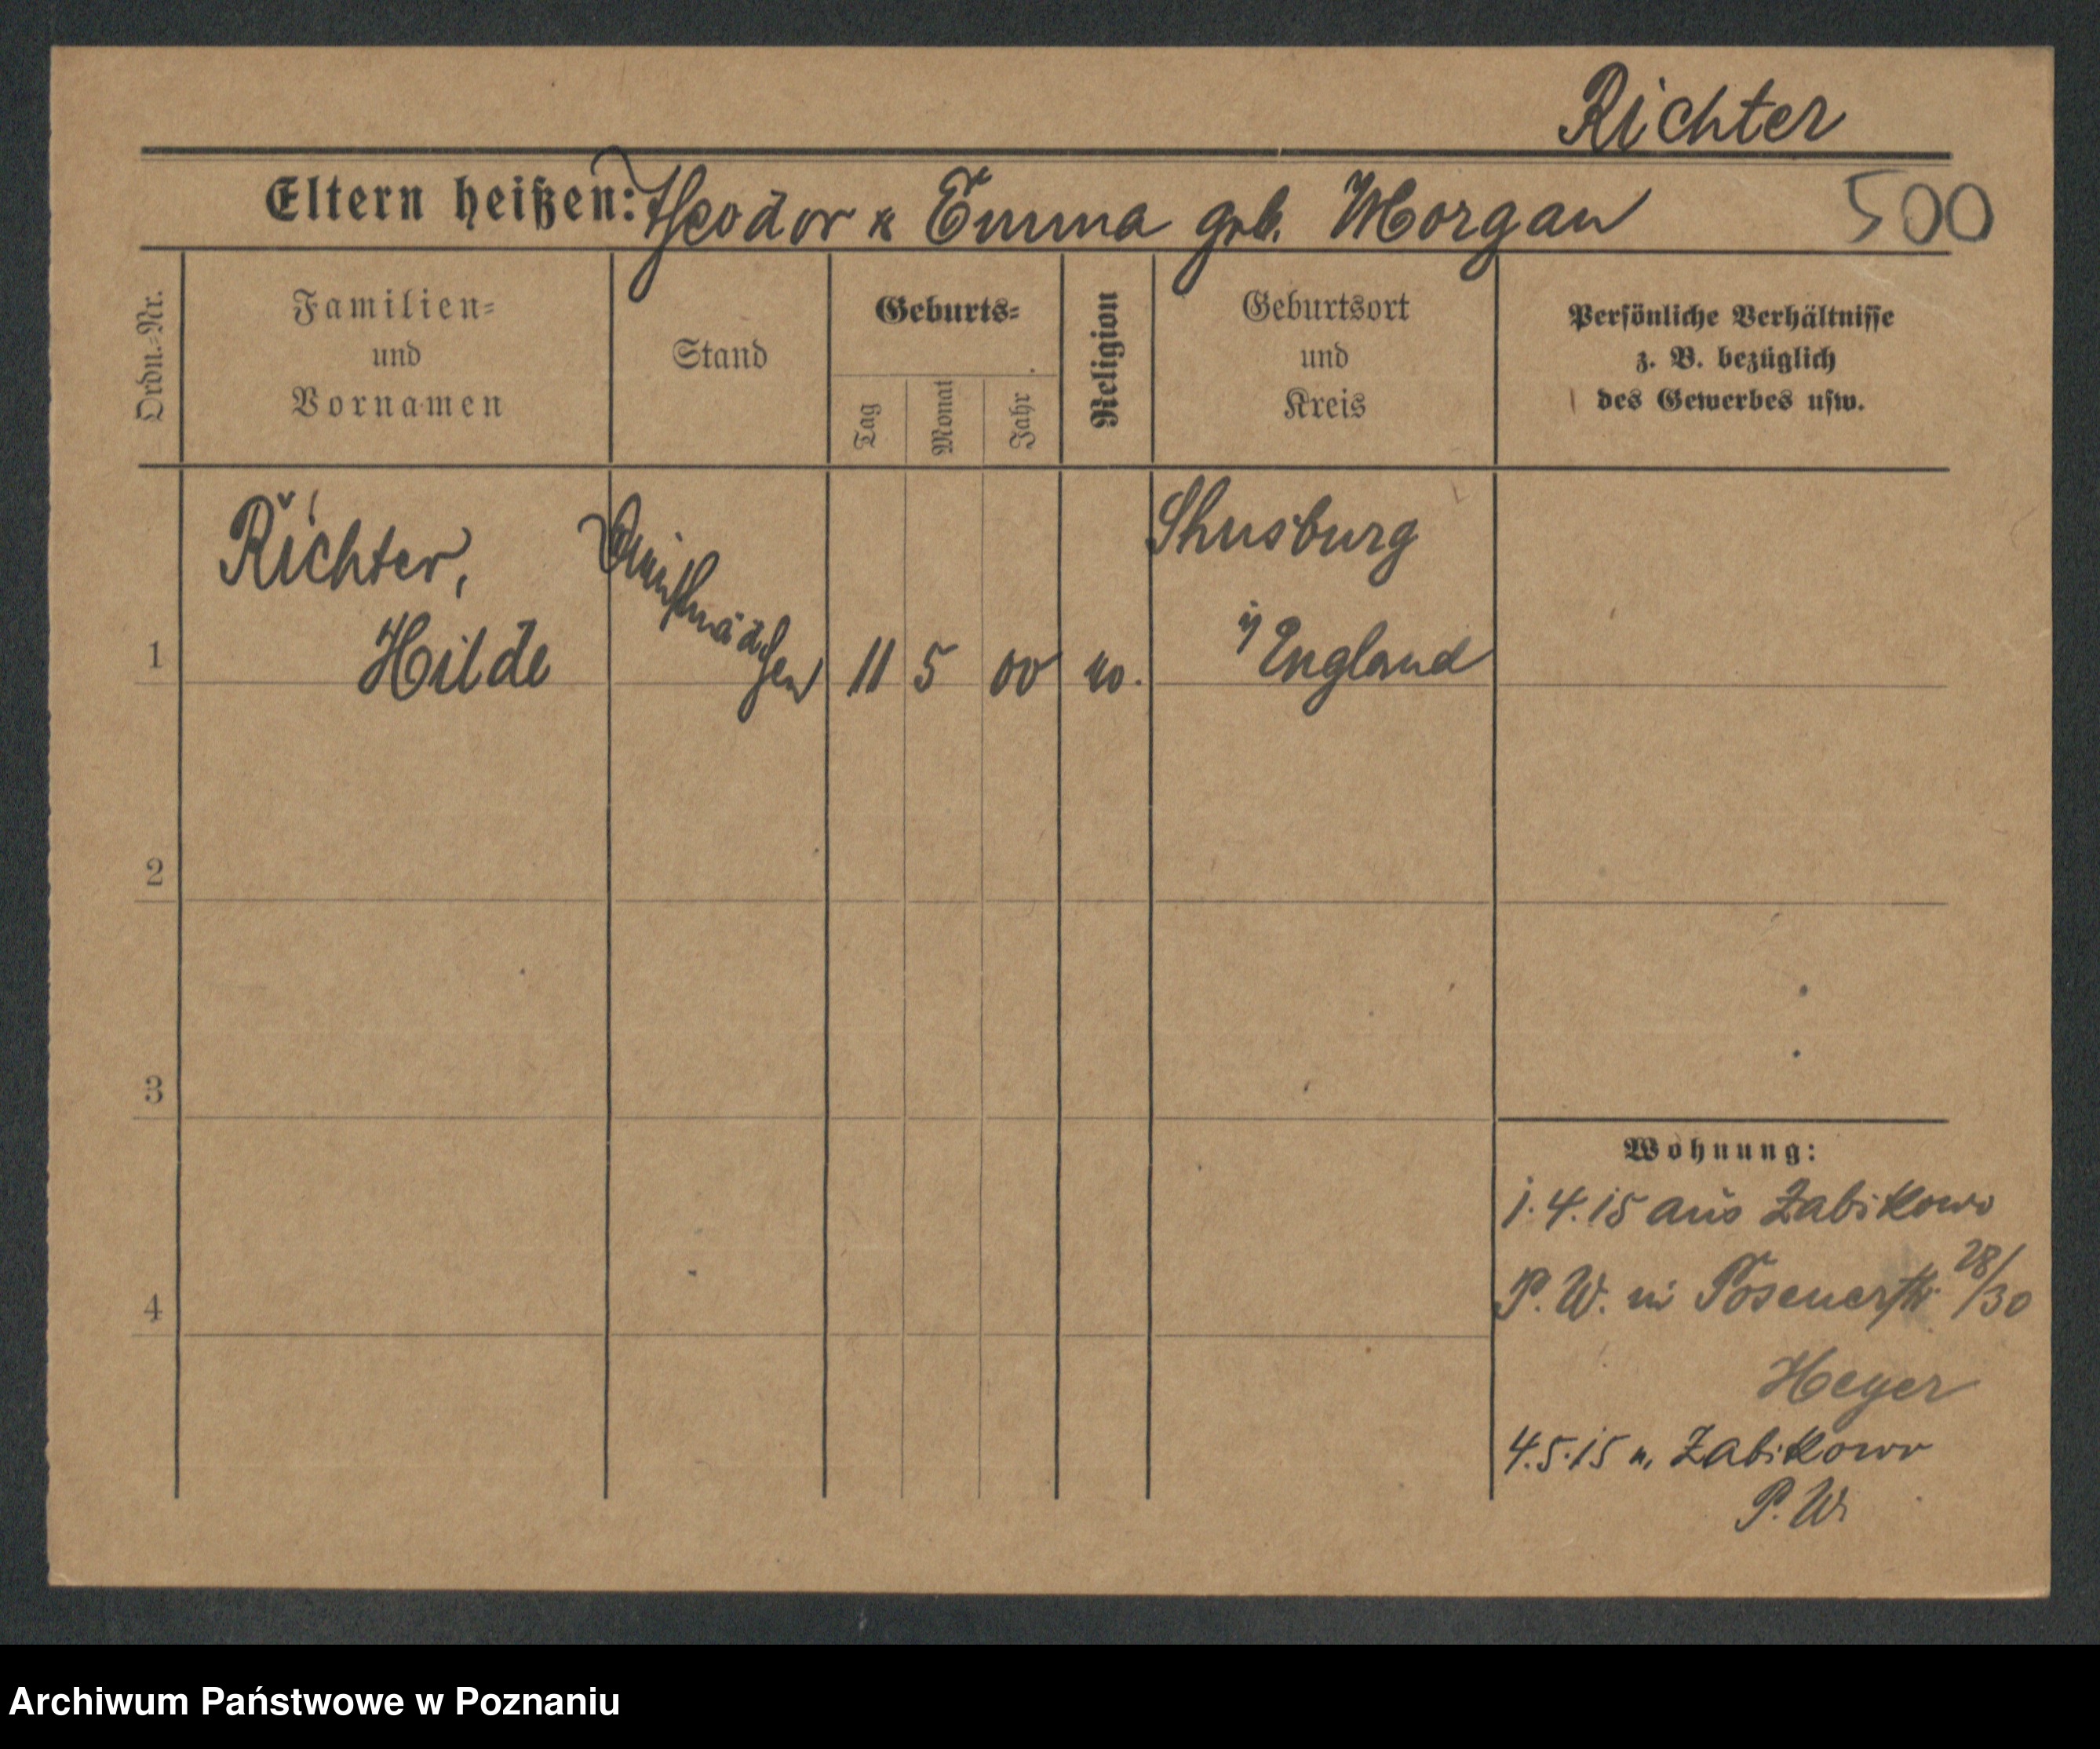 Richter
Eltern heißen: Theodor u Emma geb. Morgan 500
Ordn.=Nr.
Familien=
und
Vornamen
Stand
Geburts=
Tag
Monat
Jahr
Religion
Geburtsort
und
Kreis
Persönliche Verhältnisse
z. B. bezüglich
des Gewerbes usw.
1
Richter,
Hilde
Dienstmädchen
11 5 00
Shusburg
i/ England
2
3
4
Wohnung:
1. 4. 15 aus Zabikowo
P. W. in Posenerstr 28/30
Heyer
4. 5. 15 n. Zabikowo
P. W.
Archiwum Państwowe w Poznaniu